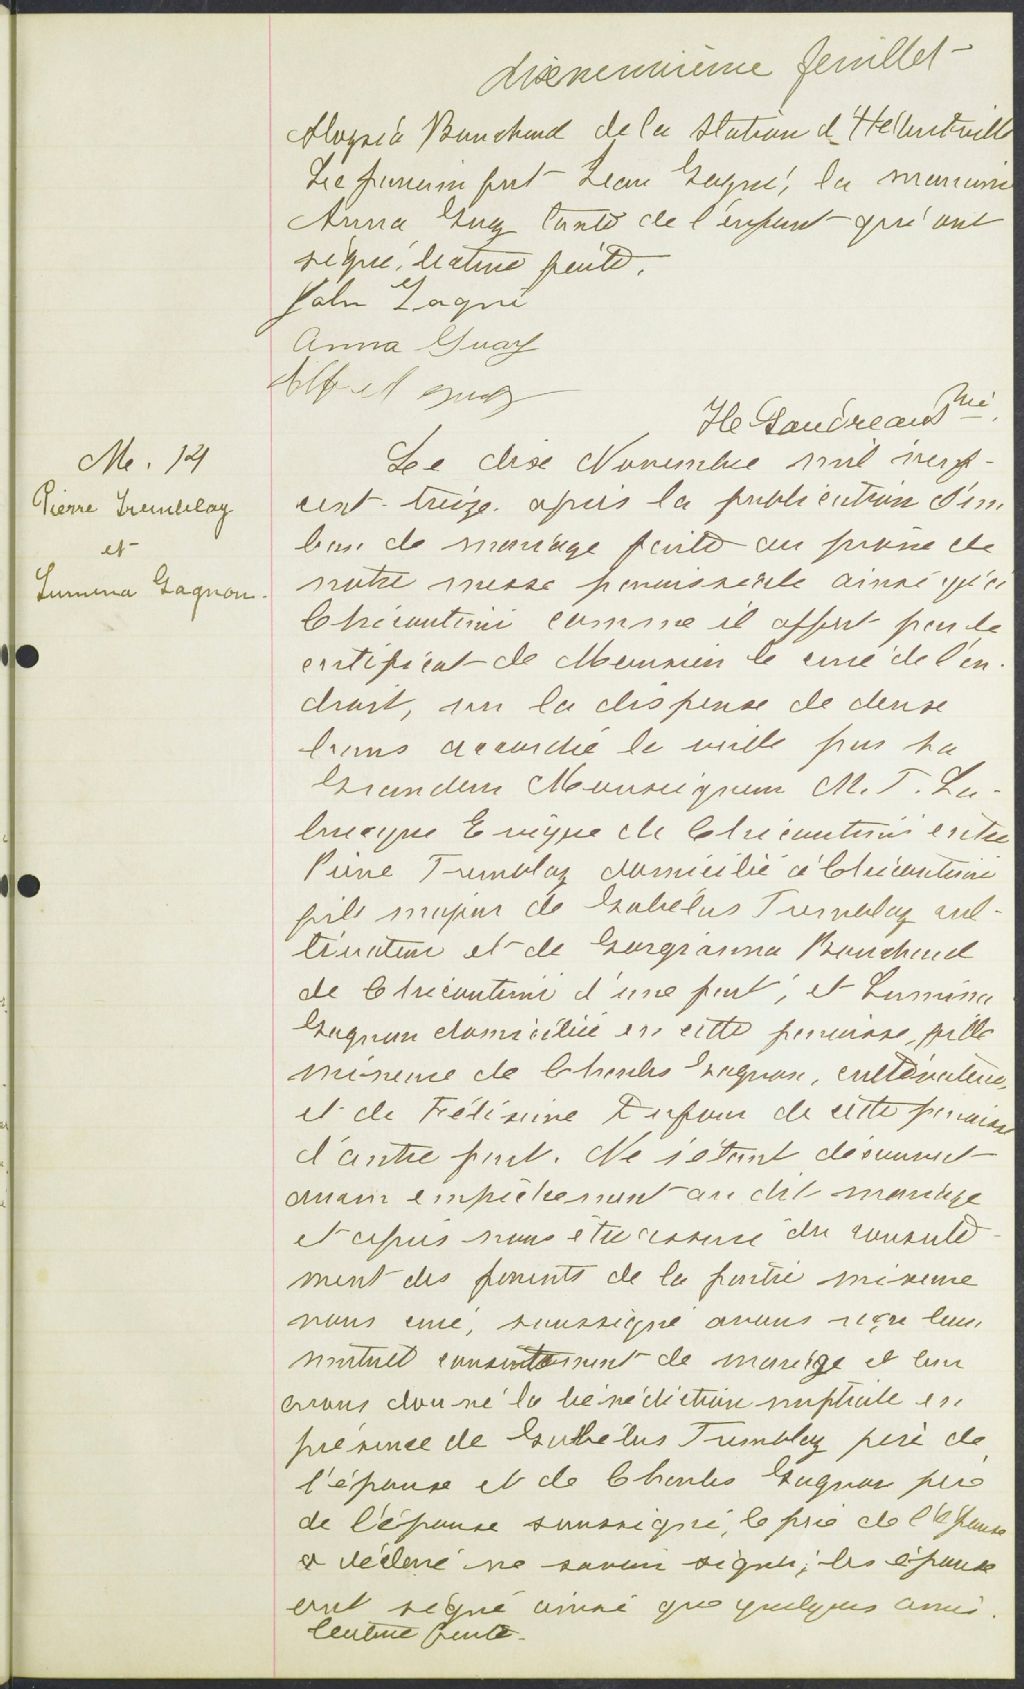 dixneuvième feuillet
Aloysia Bouchard de la station d'Hébertville
Le parrain fut Jean Gagné, la marraine
Anna Guay tante de l'enfant qui ont
signé, lecture faite.
John Gagné
Anna Guay
Alfred Guay
H. Gaudreault Ptre
M. 14
Pierre Tremblay
et
Lumina Gagnon.
Le dix Novembre mil neuf-
cent-treize après la publication d'un
ban de mariage faite au prône de
notre messe paroissiale ainsi qu'à
Chicoutimi comme il appert par le
certificat de Monsieur le curé de l'en-
droit, vu la dispense de deux
bans accordée la veille par Sa
Grandeur Monseigneur M. T. La-
brecque Evêque de Chicoutimi entre
Pierre Tremblay domicilié à Chicoutimi
fils majeur de Gabélus Tremblay cul-
tivateur et de Georgianna Bouchard
de Chicoutimi d'une part; et Lumina
Gagnon domiciliée en cette paroisse, fille
mineure de Charles Gagnon, cultivateur,
et de Félixine Dufour de cette paroisse
d'autre part. Ne s'étant découvert
aucun empêchement au dit mariage
et après nous être assuré du consente-
ment des parents de la partie mineure
nous curé, soussigné avons reçu leur
mutuel consentement de mariage et leur
avons donné la bénédiction nuptiale en
présence de Gabélus Tremblay père de
l'époux et de Charles Gagnon père
de l'épouse soussigné, le père de l'épouse
a déclaré ne savoir signer; les époux
ont signé ainsi que quelques amis.
Lecture faite.